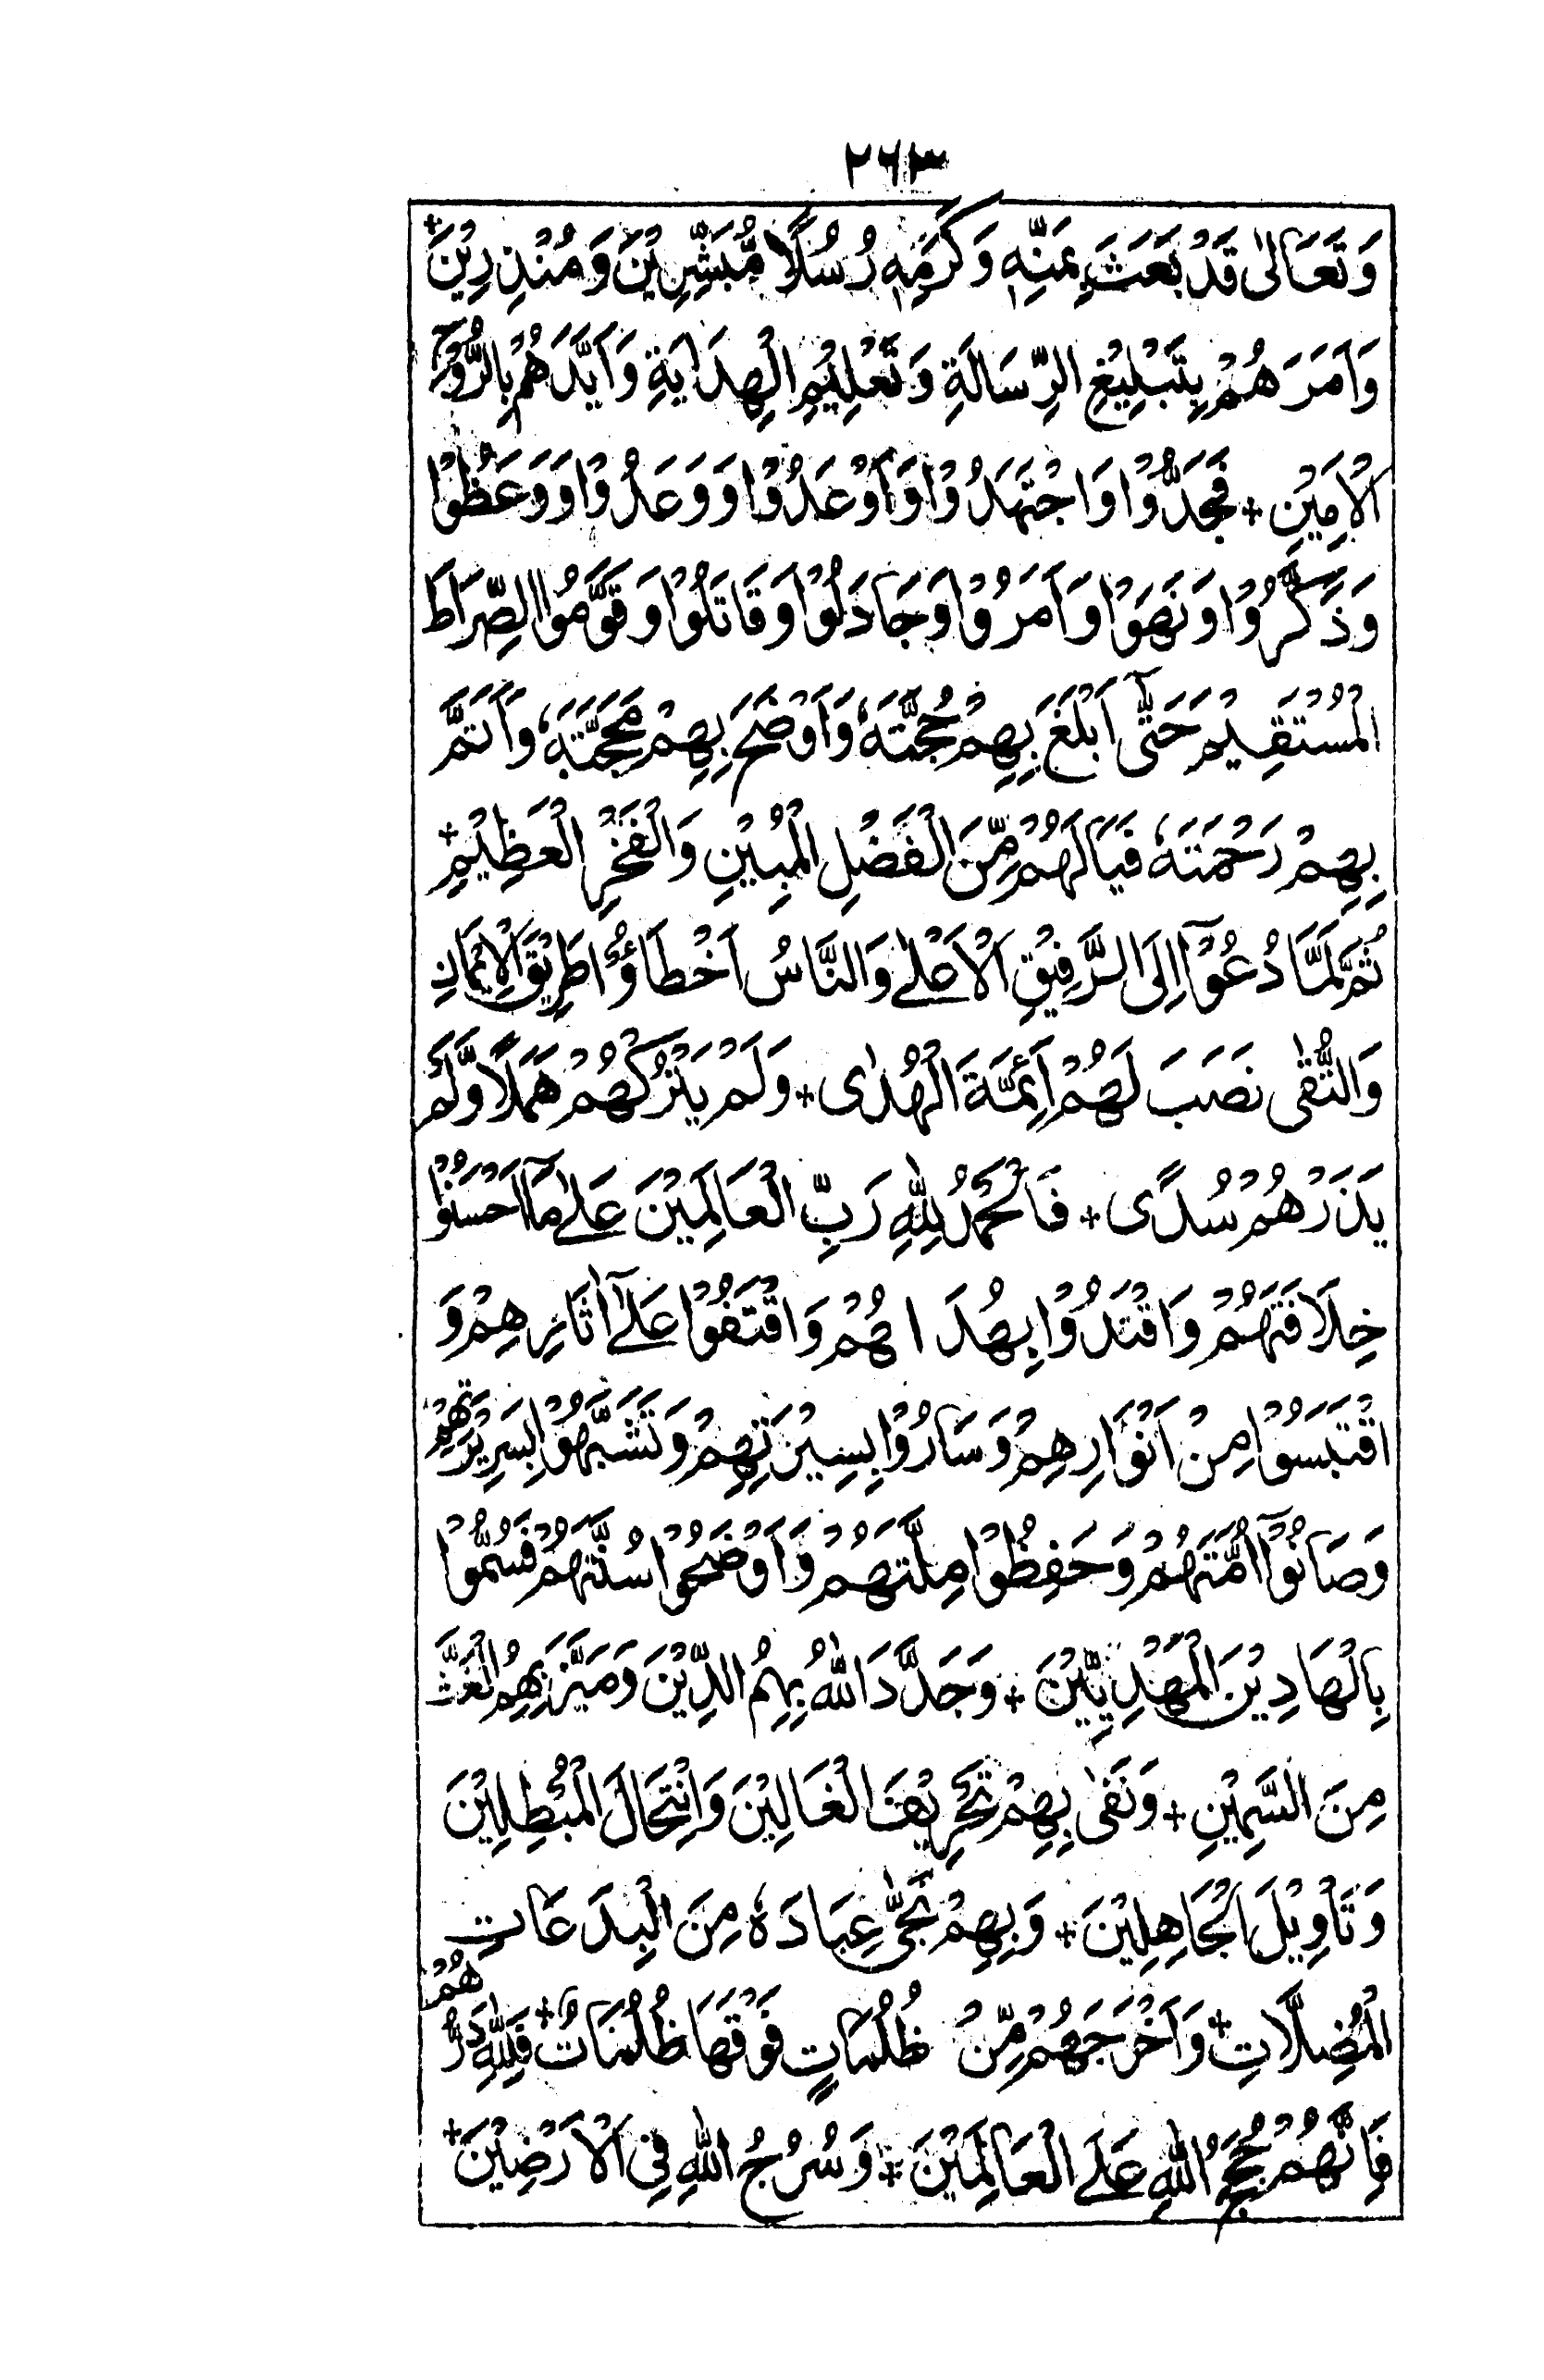 ٢٦٣
وَتَعَالٰى قَدْ بَعَثَ بِمَنِّهٖ وَكَرَمِهٖ رُسُلًا مُّبَشِّرِيْنَ وَمُنْذِرِيْنَ +
وَاَمَرَهُمْ بِتَبْلِيْغِ الرِّسَالَةِ وَتَعْلِيْمِ الْهِدَايَةِ وَاَيَّدَهُمْ بِالرُّوْحِ
الْاَمِيْنِ + فَجَدُّوْا وَاجْتَهَدُوْا وَاَوْعَدُوْا وَوَعَدُوْا وَوَعَظُوْا
وَذَكَّرُوْا وَنَهَوْا وَاَمَرُوْا وَجَادَلُوْا وَقَاتَلُوْا وَقَوَّمُوا الصِّرَاطَ
الْمُسْتَقِيْمَ حَتّٰى اَبْلَغَ بِهِمْ حُجَّتَهٗ وَاَوْضَحَ بِهِمْ مَحَجَّتَهٗ وَاَتَمَّ
بِهِمْ رَحْمَتَهٗ فَيَالَهُمْ مِّنَ الْفَضْلِ الْمُبِيْنِ وَالْفَخْرِ الْعَظِيْمِ +
ثُمَّ لَمَّا دُعُوْٓا اِلَى الرَّفِيْقِ الْاَعْلٰے وَالنَّاسُ اَخْطَاؤُا طَرِيْقَ الْاِيْمَانِ
وَالتُّقٰى نَصَبَ لَهُمْ اَئِمَّةَ الْهُدٰى + وَلَمْ يَتْرُكْهُمْ هَمَلًا وَّلَمْ
يَذَرْهُمْ سُدًى + فَالْحَمْدُ لِلّٰهِ رَبِّ الْعَالَمِيْنَ عَلٰے مَآ اَحْسَنُوْا
خِلَافَتَهُمْ وَاقْتَدُوْا بِهُدَاهُمْ وَاقْتَفَوْا عَلٰٓے اٰثَارِهِمْ وَ
اقْتَبَسُوْا مِنْ اَنْوَارِهِمْ وَسَارُوْا بِسِيْرَتِهِمْ وَتَشَبَّهُوْا بِسَرِيْرَتِهِمْ
وَصَانُوْٓا اُمَّتَهُمْ وَحَفِظُوْا مِلَّتَهُمْ وَاَوْضَحُوْا سُنَّتَهُمْ فَسُمُّوْا
بِالْهَادِيْنَ الْمَهْدِيِّيْنَ + وَجَدَّدَ اللّٰهُ بِهِمُ الدِّيْنَ وَمَيَّزَ بِهِمُ الْغَثَّ
مِنَ السَّمِيْنِ + وَنَفٰى بِهِمْ تَحْرِيْفَ الْغَالِيْنَ وَانْتِحَالَ الْمُبْطِلِيْنَ
وَتَاْوِيْلَ الْجَاهِلِيْنَ + وَبِهِمْ نَجّٰى عِبَادَهٗ مِنَ الْبِدَعَاتِ
الْمُضِلَّاتِ + وَاَخْرَجَهُمْ مِّنْ ظُلُمَاتٍ فَوْقَهَا ظُلُمَاتٌ + فَلِلّٰهِ دَرُّهُمْ
فَاِنَّهُمْ حُجَجُ اللّٰهِ عَلَے الْعَالَمِيْنَ + وَسُرُجُ اللّٰهِ فِي الْاَرَضِيْنَ +